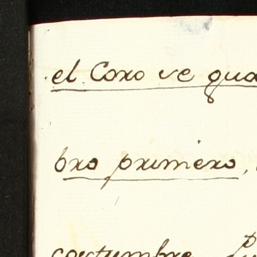 el Coro se qua
bro primero,
costumbre